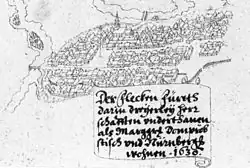 Der Flecken Fuerts
darin dreyerley herr
schafften underthanen
als Marggrf Dompröb
stisch und Nürnberth
wohnen · 1630